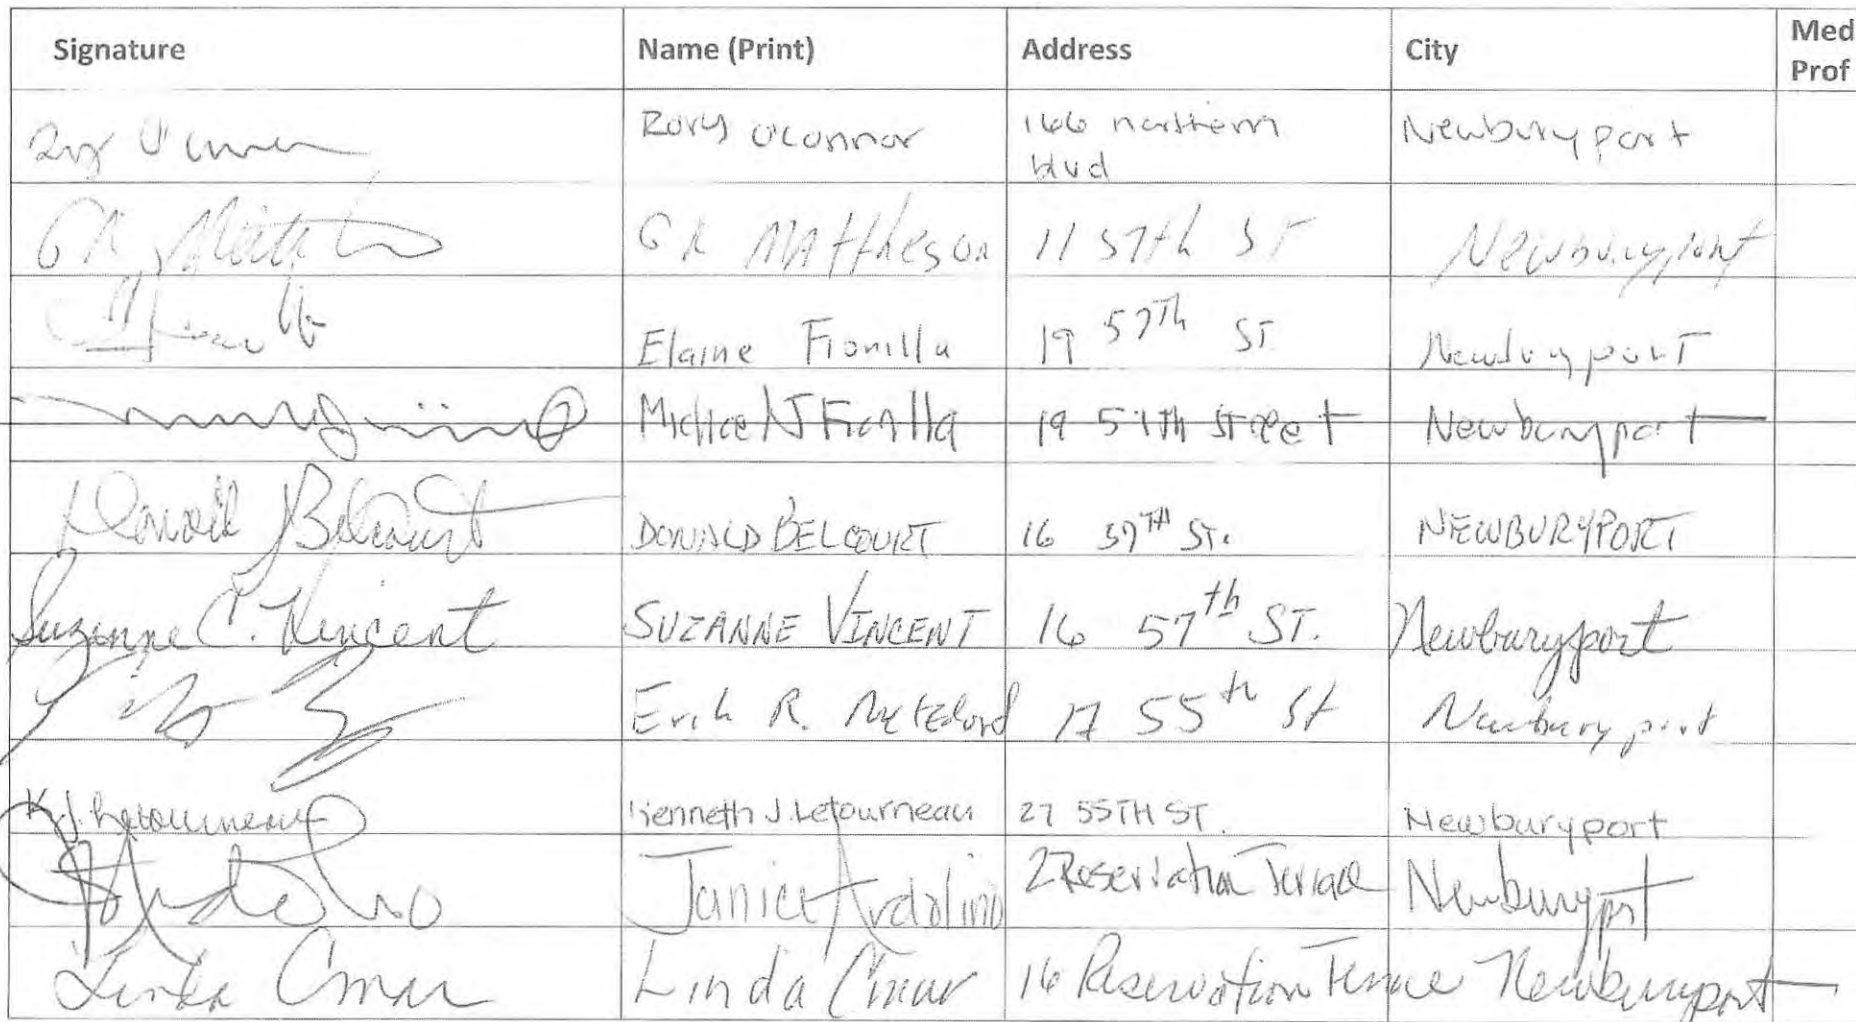 Signature Name (Print) Address City Med Prof
Rory O'Connor 166 northern blvd Newburyport
GR Mattheson 11 57th ST Newburyport
Elaine Fiorilla 19 57Th ST Newburyport
Fiorilla 19 57th Street Newburyport
Donald Belcourt DONALD BELCOURT 16 57TH ST. NEWBURYPORT
Suzanne C. Vincent SUZANNE VINCENT 16 57th ST. Newburyport
Erik R. 17 55th St Newburyport
K.J. Letourneau Kenneth J. Letourneau 27 55TH ST. Newburyport
Janice Ardolino 2 Reservation Terrace Newburyport
Linda Linda 16 Reservation Terrace Newburyport